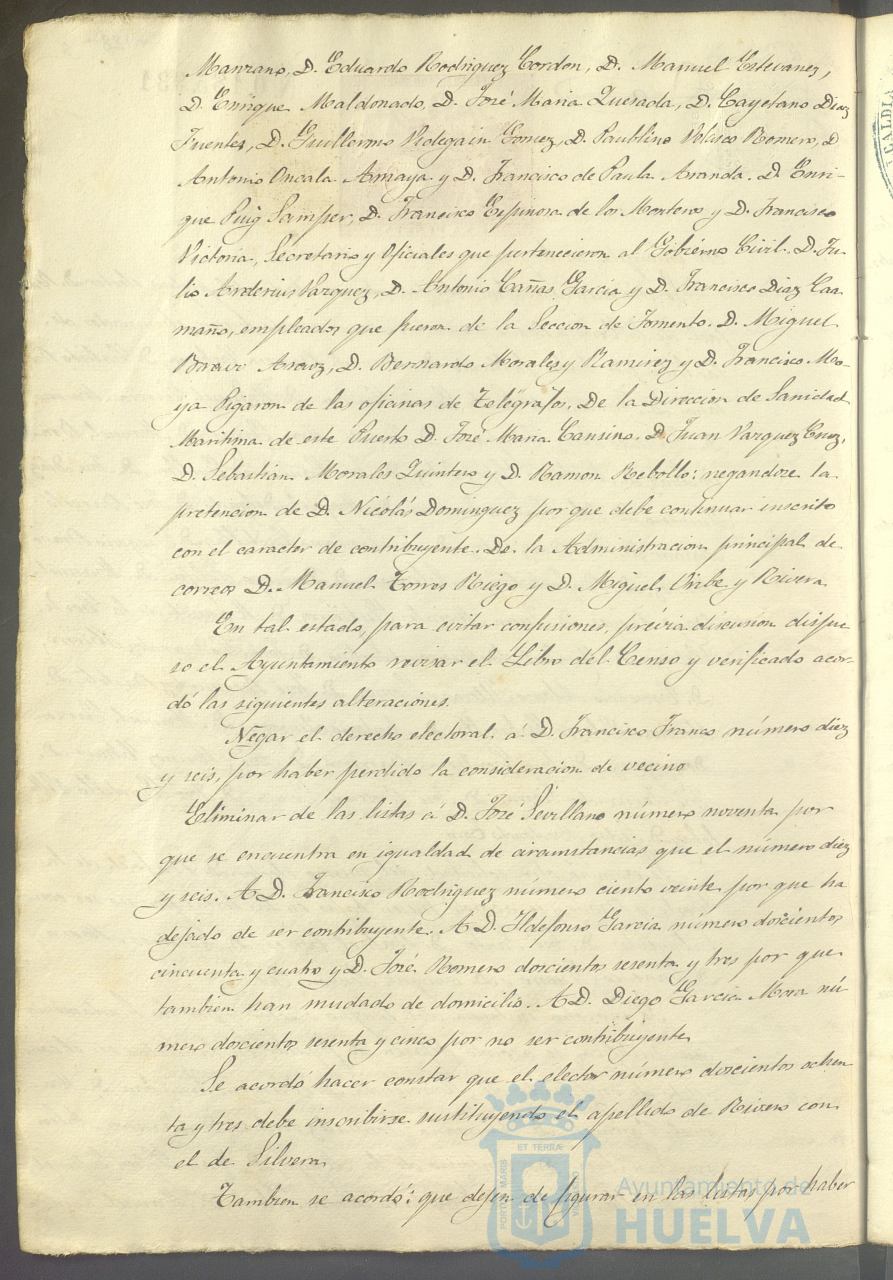 Manzano, D. Eduardo Rodriguez Cordon, D. Manuel Estevanez,
D. Enrique Maldonado, D. José Maria Quesada, D. Cayetano Diaz
Fuentes, D. Guillermo Videgain Gomez, D. Paublino Velasco Romero, D
Antonio Oncala Amaya y D. Francisco de Paula Aranda. D. Enri-
que Puig Samper, D. Francisco Espinosa de los Monteros y D. Francisco
Victoria, Secretario y Oficiales que pertenecieron al Gobierno Civil. D. Ju-
lio Arderius Vazquez, D. Antonio Cañas Garcia y D. Francisco Diaz Caa-
maño, empleados que fueron de la Seccion de Fomento. D. Miguel
Bravo D. Bernardo Morales y Ramirez y D. Francisco Mo-
ya Pigaron de las oficinas de Telégrafos. De la Direccion de Sanidad
Maritima de este Puerto D. José Maria Cansino. D. Juan Vazquez Cruz,
D. Sebastian Morales Quintero y D. Ramon Rebollo: negandose la
pretencion de D. Nicolás Dominguez por que debe continuar inscrito
con el caracter de contribuyente. De la Administracion principal de
correos D. Manuel Torres Riego y D. Miguel Uribe y Rivera
En tal estado, para evitar confusiones, prévia discusion dispu-
so el Ayuntamiento revisar el Libro del Censo y verificado acor-
dó las siguientes alteraciones.
Negar el derecho electoral á D. Francisco Franco número diez
y seis, por haber perdido la consideracion de vecino
Eliminar de las listas á D. José Sevillano número noventa por
que se encuentra en igualdad de circunstancias que el número diez
y seis. A D. Francisco Rodriguez número ciento veinte por que ha
dejado de ser contribuyente. A D. Ildefonso Garcia número doscientos
cincuenta y cuatro y D. José Romero doscientos sesenta y tres por que
tambien han mudado de domicilio. A D. Diego Garcia Mora nú-
mero doscientos sesenta y cinco por no ser contribuyente
Se acordó hacer constar que el elector número doscientos ochen
ta y tres debe inscribirse sustituyendo el apellido de Rivero con
el de Silvera
Tambien se acordó: que dejen de figurar en las listas por haber
PORTUS MARIS ET TERRÆ
Ayuntamiento de
HUELVA